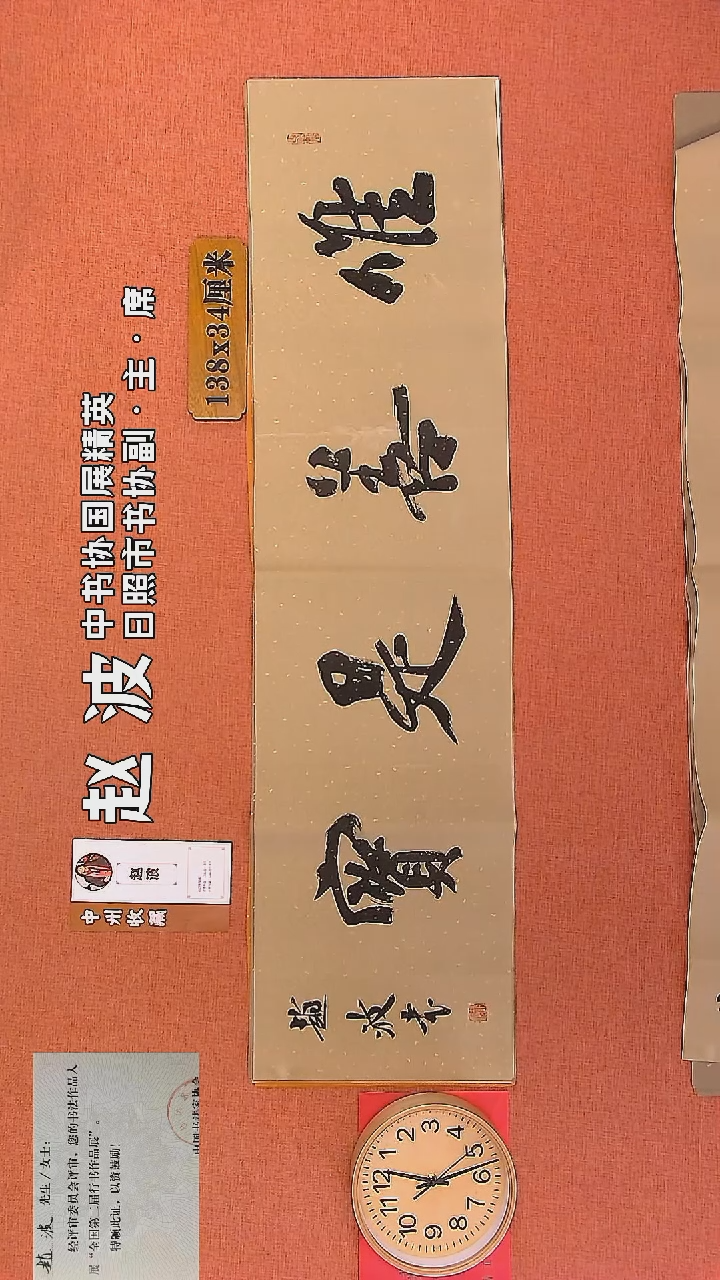 赵波
中书协国展精英
日照市书协副·主·席
138x34厘米
中州收藏
赵波
惟善是寶
趙波書
赵波 先生/女士:
经评审委员会评审，您的书法作品入
展“全国第二届行书作品展”。
特颁此证，以资鼓励！
中国书法家协会
12
1
2
3
4
5
6
7
8
9
10
11